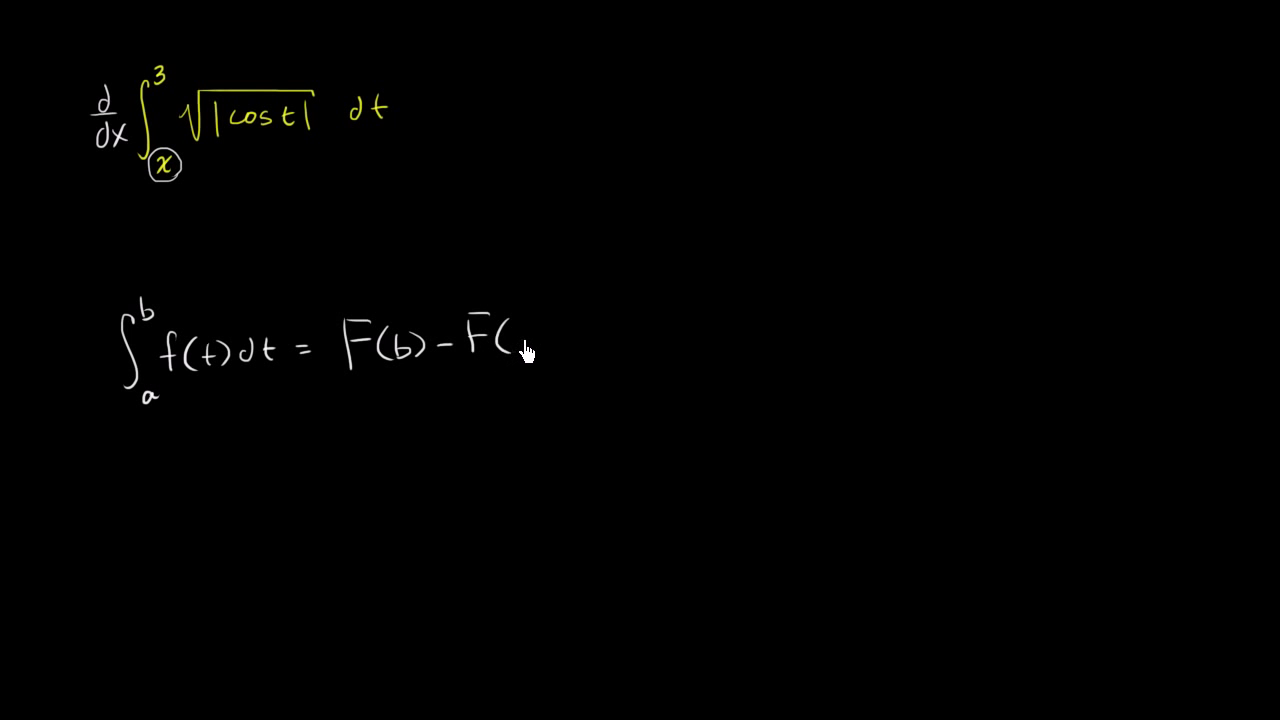 d/dx ∫_x^3 √|cos t| dt
∫_a^b f(t)dt = F(b) - F(